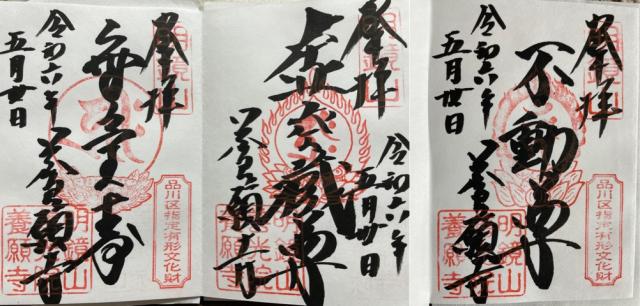 奉拝
明鏡山
無量寿
品川区指定有形文化財
明鏡山
養願寺
養願寺
令和六年
五月廿日
奉拝
明鏡山
虚空蔵尊
養願寺
明鏡山
光院
養願寺
令和六年
五月廿日
奉拝
明鏡山
不動尊
品川区指定有形文化財
明鏡山
養願寺
養願寺
令和六年
五月廿日